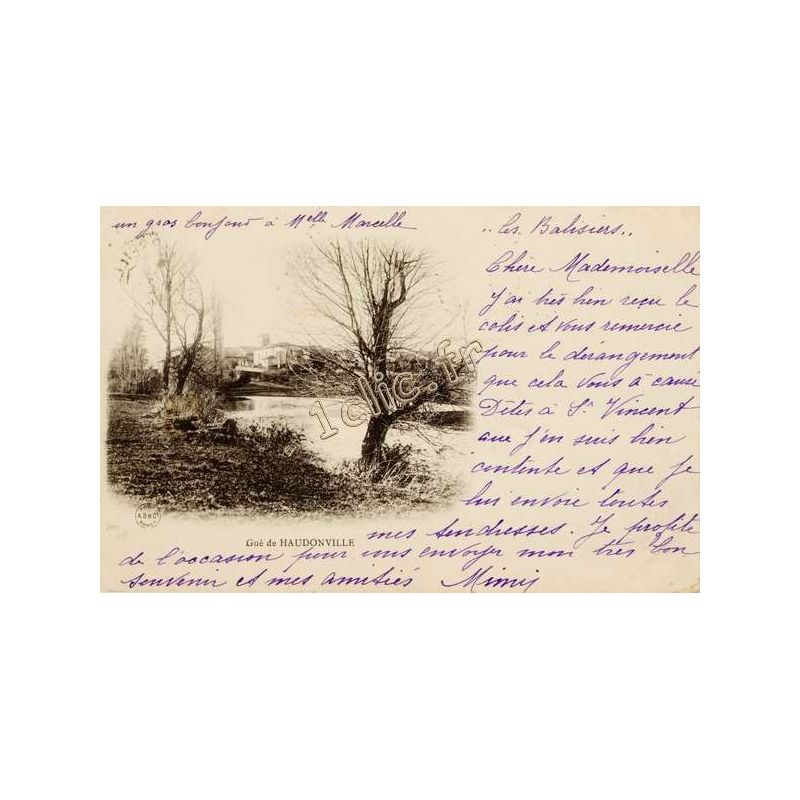 un gros bonjour à Melle Marcelle
"les Balisiers"
Chère Mademoiselle
J'ai très bien reçu le
colis et vous remercie
pour le dérangement
que cela vous a causé
Dites à St Vincent
que j'en suis bien
contente et que je
lui envoie toutes
mes tendresses. Je profite
de l'occasion pour vous envoyer mon très bon
souvenir et mes amitiés Mimi
1clic.fr
Gué de HAUDONVILLE